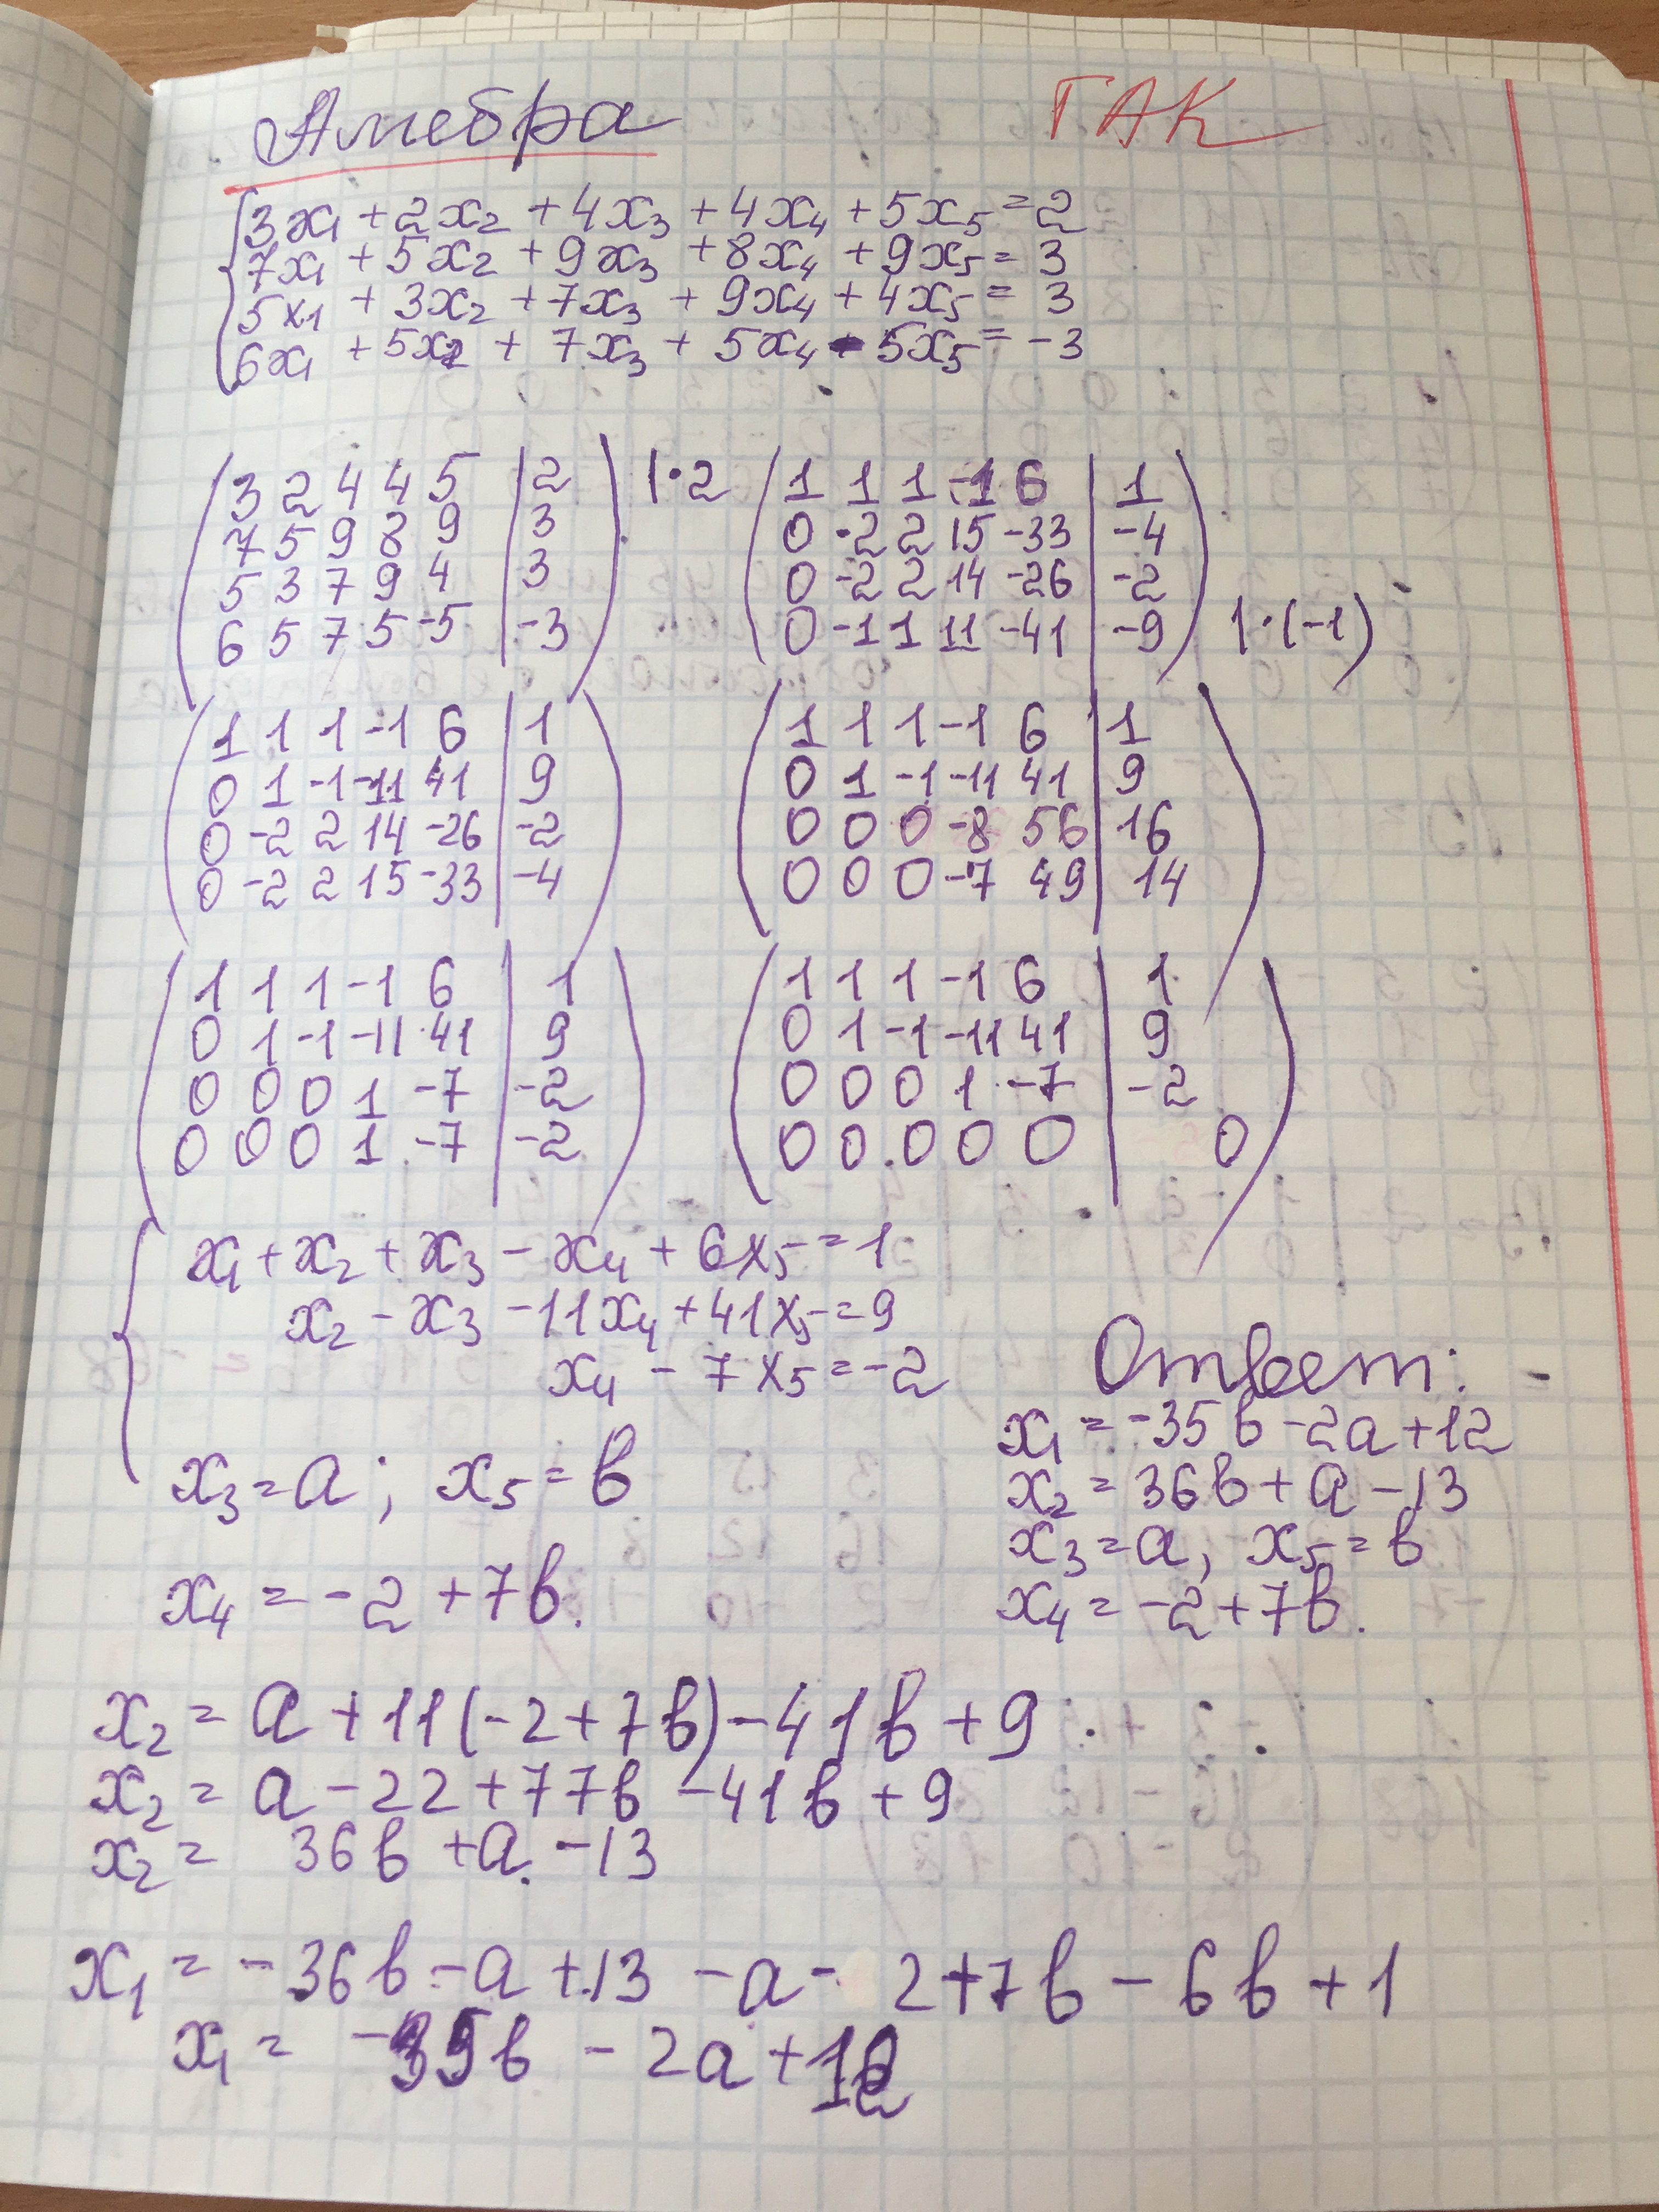 Алгебра ГАК
3x₁ + 2x₂ + 4x₃ + 4x₄ + 5x₅ = 2
7x₁ + 5x₂ + 9x₃ + 8x₄ + 9x₅ = 3
5x₁ + 3x₂ + 7x₃ + 9x₄ + 4x₅ = 3
6x₁ + 5x₂ + 7x₃ + 5x₄ - 5x₅ = -3
3 2 4 4 5 | 2 |·2
7 5 9 8 9 | 3
5 3 7 9 4 | 3
6 5 7 5 -5 | -3
1 1 1 -1 6 | 1
0 -2 2 15 -33 | -4
0 -2 2 14 -26 | -2
0 -1 1 11 -41 | -9 |·(-1)
1 1 1 -1 6 | 1
0 1 -1 -11 41 | 9
0 -2 2 14 -26 | -2
0 -2 2 15 -33 | -4
1 1 1 -1 6 | 1
0 1 -1 -11 41 | 9
0 0 0 -8 56 | 16
0 0 0 -7 49 | 14
1 1 1 -1 6 | 1
0 1 -1 -11 41 | 9
0 0 0 1 -7 | -2
0 0 0 1 -7 | -2
1 1 1 -1 6 | 1
0 1 -1 -11 41 | 9
0 0 0 1 -7 | -2
0 0 0 0 0 | 0
x₁ + x₂ + x₃ - x₄ + 6x₅ = 1
x₂ - x₃ - 11x₄ + 41x₅ = 9
x₄ - 7x₅ = -2
x₃ = a; x₅ = b
x₄ = -2 + 7b.
Ответ:
x₁ = -35b - 2a + 12
x₂ = 36b + a - 13
x₃ = a, x₅ = b
x₄ = -2 + 7b.
x₂ = a + 11(-2 + 7b) - 41b + 9
x₂ = a - 22 + 77b - 41b + 9
x₂ = 36b + a - 13
x₁ = -36b - a + 13 - a - 2 + 7b - 6b + 1
x₁ = -35b - 2a + 12